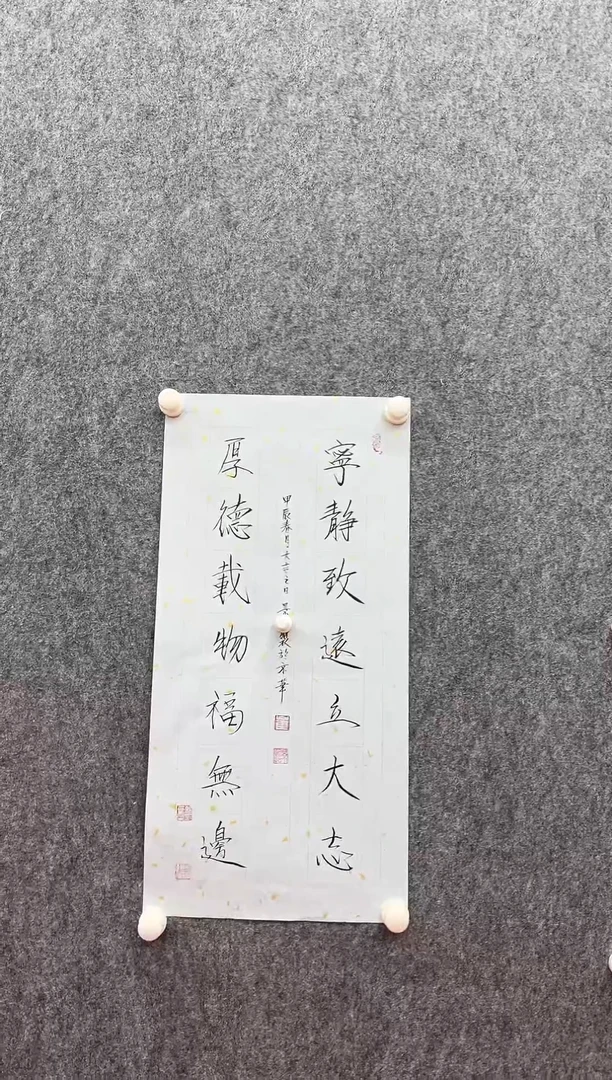 寧靜致遠立大志
甲辰春月
於京華
厚德載物福無邊